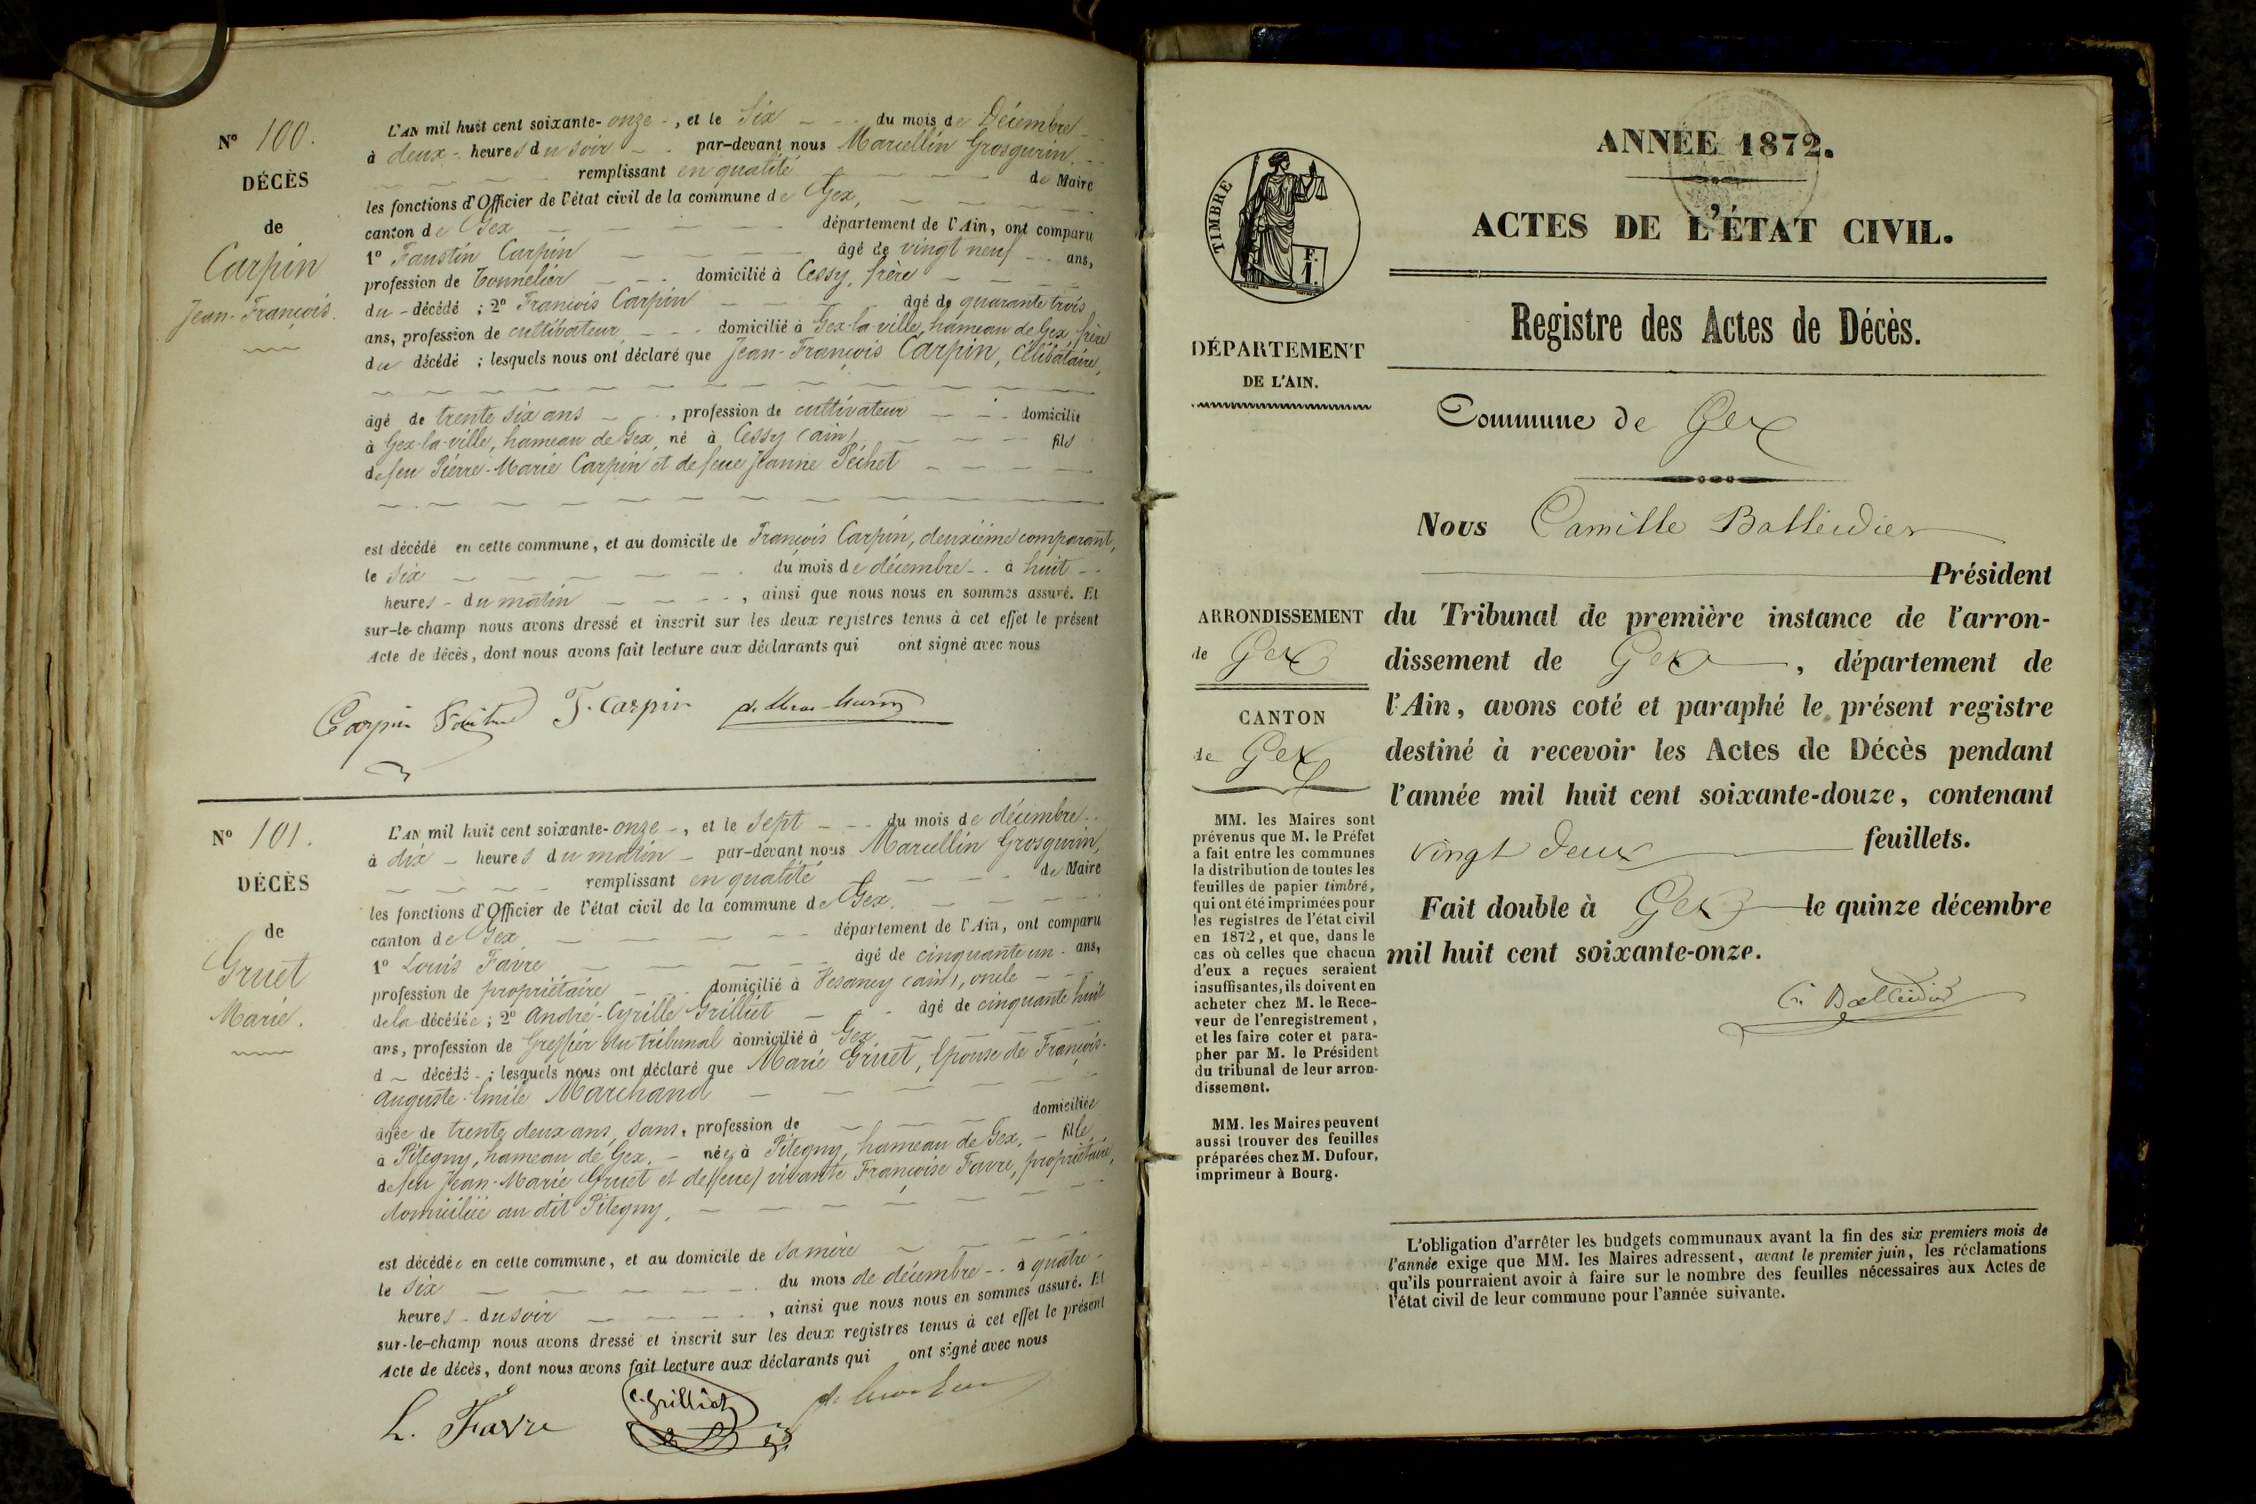 N° 100.
DÉCÈS
de
Carpin
Jean-François.
L'AN mil huit cent soixante-onze -, et le Six - - du mois de Décembre -
à deux - heures du soir - - par-devant nous Marcellin Grosgurin, - -
remplissant en qualité - - - - de Maire
les fonctions d'Officier de l'état civil de la commune de Gex, - - - -
canton de Gex - - - - - département de l'Ain, ont comparu
1° Faustin Carpin - - - - âgé de vingt neuf - - ans,
profession de Tonnelier - - - domicilié à Cessy, frère - - -
du - décédé ; 2° François Carpin - - - - âgé de quarante trois
ans, profession de cultivateur, - - - domicilié à Gex-la-ville, hameau de Gex, frère
du décédé ; lesquels nous ont déclaré que Jean-François Carpin, célibataire,
âgé de trente six ans - - , profession de cultivateur - - - domicilié
à Gex-la-ville, hameau de Gex, né à Cessy (ain) - - - fils
de feu Pierre-Marie Carpin et de feue Jeanne Péchet - - - -
est décédé en cette commune, et au domicile de François Carpin, deuxième comparant,
le Six - - - - - - du mois de décembre - - à huit - -
heures - du matin - - - - , ainsi que nous nous en sommes assuré. Et
sur-le-champ nous avons dressé et inscrit sur les deux registres tenus à cet effet le présent
Acte de décès, dont nous avons fait lecture aux déclarants qui ont signé avec nous
Carpin F. Carpin
N° 101.
DÉCÈS
de
Gruet
Marie.
L'AN mil huit cent soixante-onze -, et le Sept - - - du mois de décembre - -
à dix - heures du matin - par-devant nous Marcellin Grosgurin,
remplissant en qualité - - - - de Maire
les fonctions d'Officier de l'état civil de la commune de Gex. - - - -
canton de Gex, - - - - - département de l'Ain, ont comparu
1° Louis Favre - - - - - âgé de cinquante un - ans,
profession de propriétaire - - - domicilié à Vesancy (ain), oncle - - -
de la décédée ; 2° André-Cyrille Grilliet - - - âgé de cinquante huit
ans, profession de Greffier du tribunal domicilié à Gex - - - -
d - décédé - ; lesquels nous ont déclaré que Marie Gruet, Epouse de François-
Auguste-Emile Marchand - - - - -
âgée de trente deux ans, sans, profession de - - - - domiciliée
à Pitegny, hameau de Gex. - née à Pitegny, hameau de Gex. - fille
de feu Jean-Marie Gruet et de (feue) vivante Françoise Favre, propriétaire,
domiciliée au dit Pitegny, - - - - - -
est décédée en cette commune, et au domicile de Sa mère - - - -
le Six - - - - - du mois de décembre - - à quatre -
heures - du soir - - - - , ainsi que nous nous en sommes assuré. Et
sur-le-champ nous avons dressé et inscrit sur les deux registres tenus à cet effet le présent
Acte de décès, dont nous avons fait lecture aux déclarants qui ont signé avec nous
L. Favre C. Grilliet
TIMBRE
F.
1.
DÉPARTEMENT
DE L'AIN.
ARRONDISSEMENT
de Gex
CANTON
de Gex
MM. les Maires sont
prévenus que M. le Préfet
a fait entre les communes
la distribution de toutes les
feuilles de papier timbré,
qui ont été imprimées pour
les registres de l'état civil
en 1872, et que, dans le
cas où celles que chacun
d'eux a reçues seraient
insuffisantes, ils doivent en
acheter chez M. le Rece-
veur de l'enregistrement,
et les faire coter et para-
pher par M. le Président
du tribunal de leur arron-
dissement.
MM. les Maires peuvent
aussi trouver des feuilles
préparées chez M. Dufour,
imprimeur à Bourg.
ANNÉE 1872.
ACTES DE L'ÉTAT CIVIL.
Registre des Actes de Décès.
Commune de Gex
Nous Camille Balleidier
Président
du Tribunal de première instance de l'arron-
dissement de Gex, département de
l'Ain, avons coté et paraphé le présent registre
destiné à recevoir les Actes de Décès pendant
l'année mil huit cent soixante-douze, contenant
vingt deux feuillets.
Fait double à Gex le quinze décembre
mil huit cent soixante-onze.
C. Balleidier
L'obligation d'arrêter les budgets communaux avant la fin des six premiers mois de
l'année exige que MM. les Maires adressent, avant le premier juin, les réclamations
qu'ils pourraient avoir à faire sur le nombre des feuilles nécessaires aux Actes de
l'état civil de leur commune pour l'année suivante.